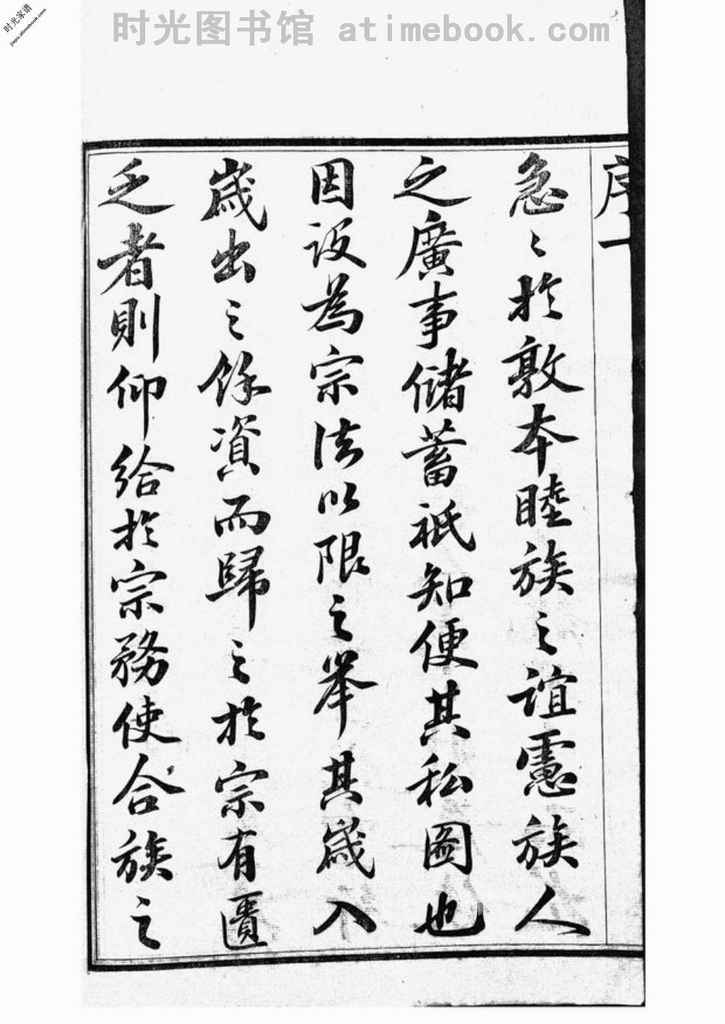 时光图书馆 atimebook.com
时光家谱
jiapu.atimebook.com
序一
急〻於敦本睦族之誼慮族人
之廣事儲蓄祇知便其私圖也
因設為宗法以限之举其歲入
歲出之餘資而歸之於宗有匱
乏者則仰給於宗務使合族之